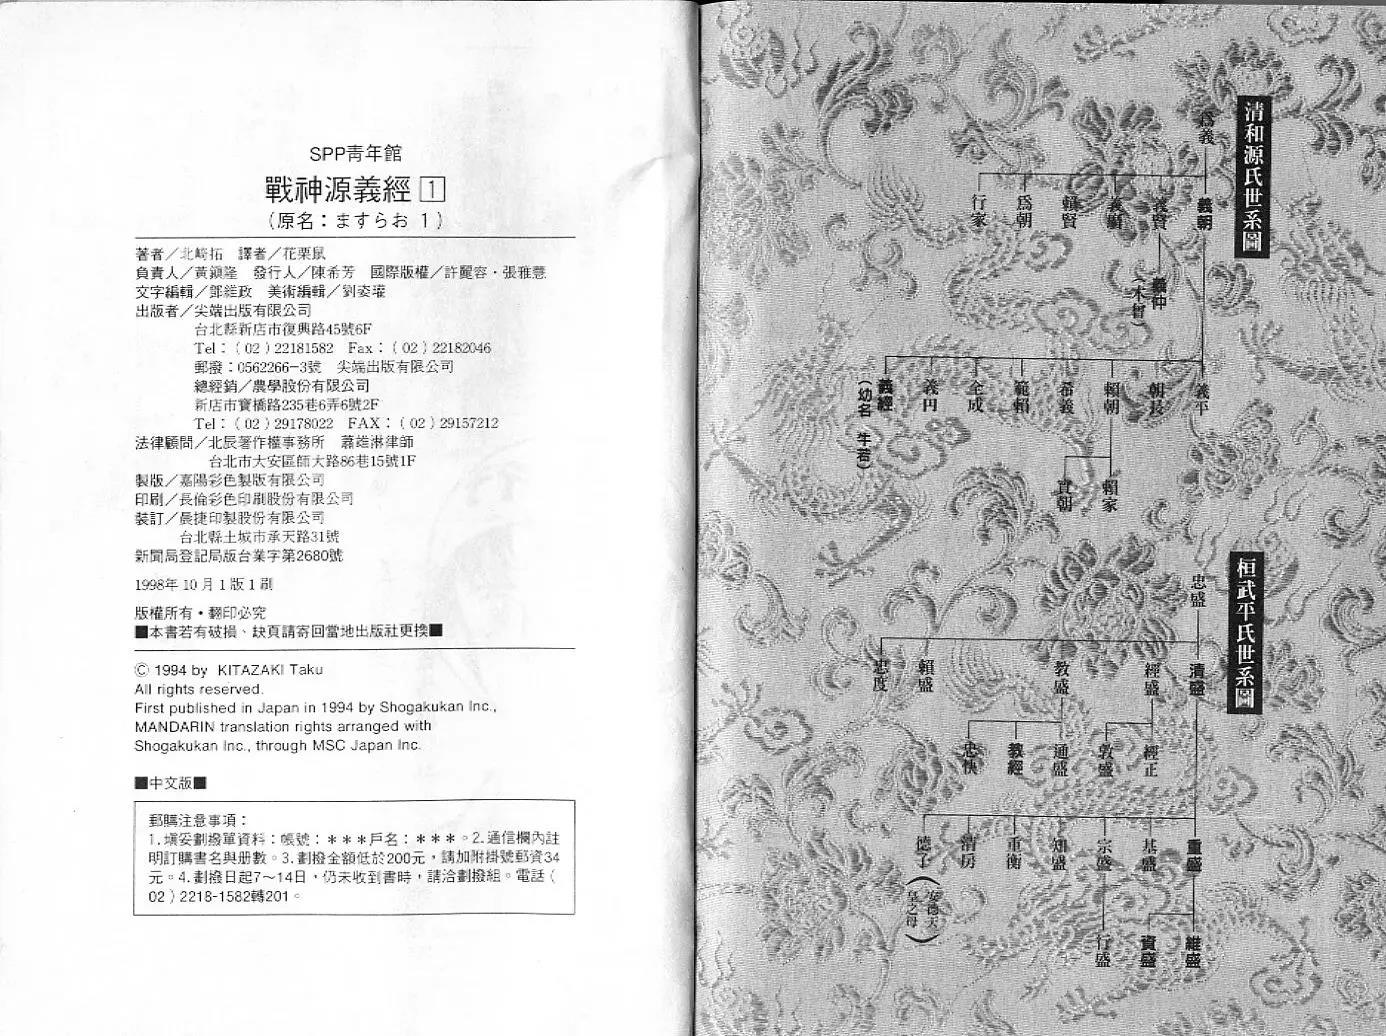 SPP青年館
戰神源義經 1
（原名：ますらお 1）
著者／北崎拓　譯者／花栗鼠
負責人／黃鎮隆　發行人／陳希芳　國際版權／許麗容・張雅慧
文字編輯／鄧維政　美術編輯／劉姿瓏
出版者／尖端出版有限公司
台北縣新店市復興路45號6F
Tel：（02）22181582　Fax：（02）22182046
郵撥：0562266-3號　尖端出版有限公司
總經銷／農學股份有限公司
新店市寶橋路235巷6弄6號2F
Tel：（02）29178022　FAX：（02）29157212
法律顧問／北辰著作權事務所　蕭雄淋律師
台北市大安區師大路86巷15號1F
製版／嘉陽彩色製版有限公司
印刷／長倫彩色印刷股份有限公司
裝訂／晨捷印製股份有限公司
台北縣土城市承天路31號
新聞局登記局版台業字第2680號
1998年10月1版1刷
版權所有・翻印必究
■本書若有破損、缺頁請寄回當地出版社更換■
© 1994 by KITAZAKI Taku
All rights reserved.
First published in Japan in 1994 by Shogakukan Inc.,
MANDARIN translation rights arranged with
Shogakukan Inc., through MSC Japan Inc.
■中文版■
郵購注意事項：
1.填妥劃撥單資料：帳號：＊＊＊戶名：＊＊＊。2.通信欄內註
明訂購書名與冊數。3.劃撥金額低於200元，請加附掛號郵資34
元。4.劃撥日起7～14日，仍未收到書時，請洽劃撥組。電話（
02）2218-1582轉201。
清和源氏世系圖
為義
義朝
義賢
義廣
賴賢
為朝
行家
義仲
（木曾）
義平
朝長
賴朝
希義
範賴
全成
義円
義經
（幼名 牛若）
賴家
實朝
桓武平氏世系圖
忠盛
清盛
經盛
教盛
賴盛
忠度
經正
敦盛
通盛
教經
忠快
重盛
基盛
宗盛
知盛
重衡
清房
德子
（安德天
皇之母）
維盛
資盛
行盛